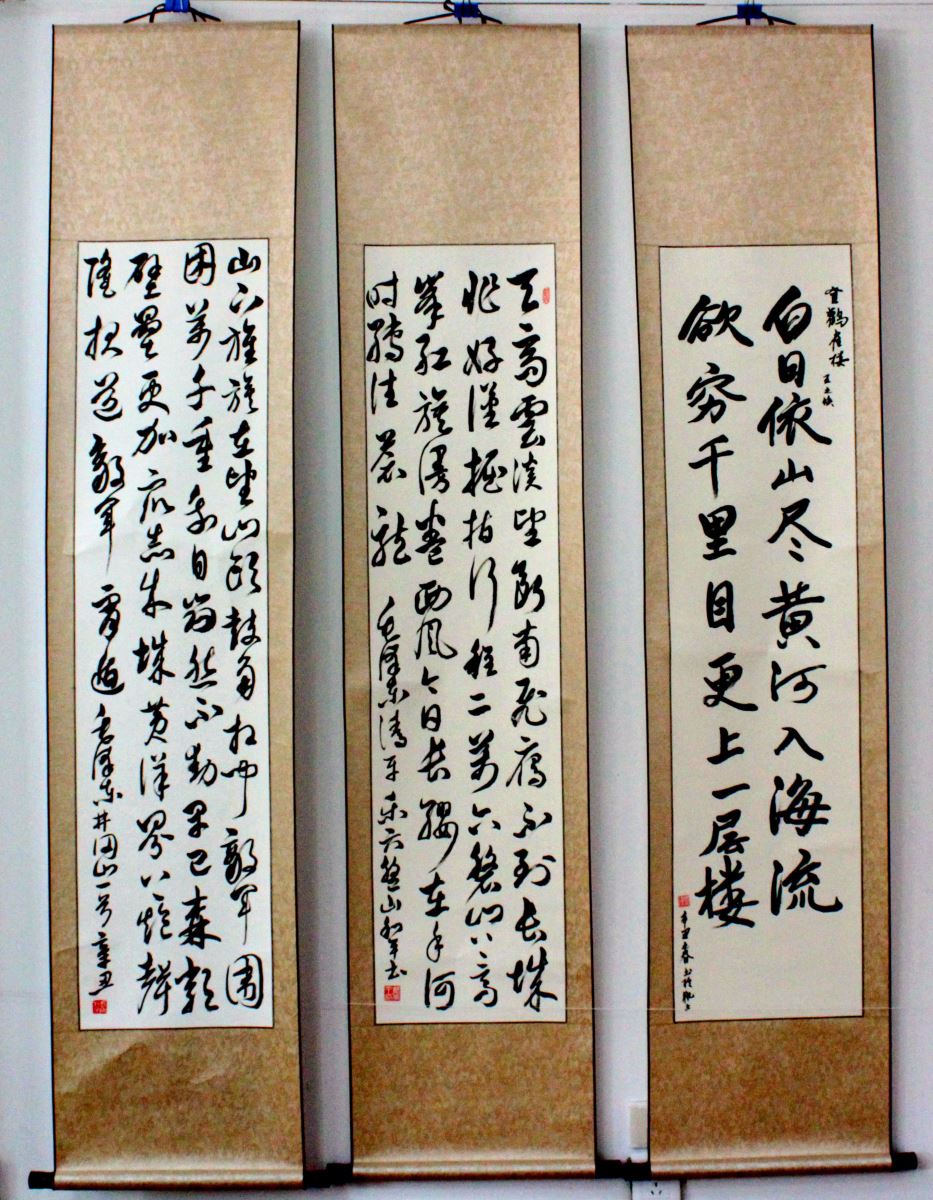 登鸛雀楼 王之涣
白日依山尽黄河入海流
欲穷千里目更上一层楼
天高雲淡望断南飞雁不到长城
非好漢屈指行程二萬六盤山上高
峰红旗漫卷西风今日长缨在手何
时缚住苍龙 毛泽东清平乐六盤山
山下旌旗在望山头鼓角相闻敵军围
困萬千重我自岿然不動早已森嚴
壁壘更加众志成城黄洋界上炮聲
隆报道敵军宵遁 毛泽东井冈山一首 辛丑